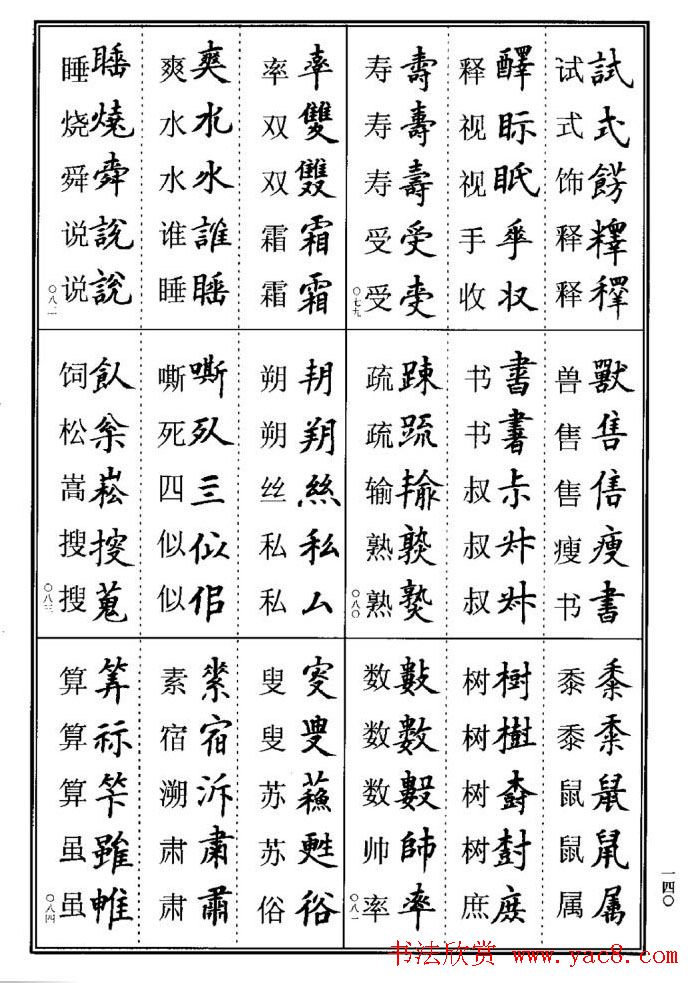 試式餝
试式饰释释
醳眎眡収
释视视手收
壽壽壽受
寿寿寿受受
〇七九
獸售瘦書
兽售售瘦书
書書尗
书书叔叔叔
踈疏
疏疏输熟熟
〇八〇
黍黍鼠鼠属
黍黍鼠鼠属
樹樹庻
树树树树庶
數數師率
数数数帅率
〇八一
率雙霜霜
率双双霜霜
爽水水誰睡
爽水水谁睡
睡燒舜說說
睡烧舜说说
〇八二
朔絲私厶
朔朔丝私私
嘶亖佀佀
嘶死四似似
飤崧搜蒐
饲松嵩搜搜
〇八三
叜蘓甦俗
叟叟苏苏俗
宿泝肅
素宿溯肃肃
筭祘雖
算算算虽虽
〇八四
一四〇
书法欣赏 www.yac8.com